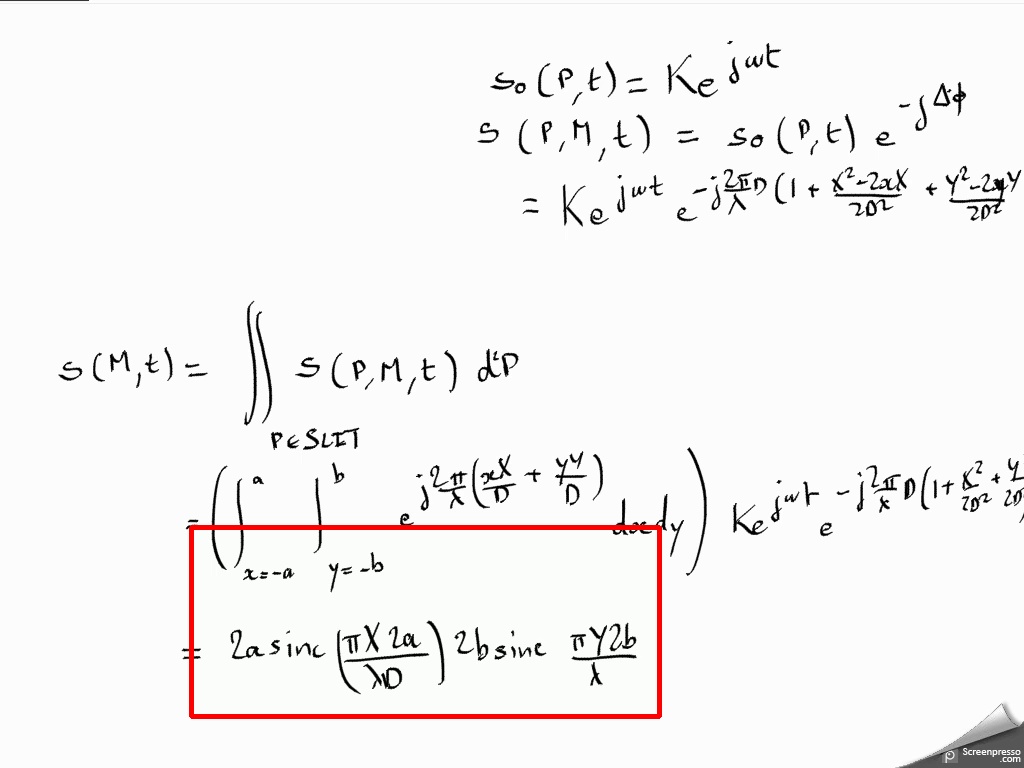 s₀(P,t) = Ke^{jωt}
s(P,M,t) = s₀(P,t) e^{-jΔφ}
= Ke^{jωt} e^{-j\frac{2π}{λ}D(1 + \frac{X²-2xX}{2D²} + \frac{Y²-2yY}{2D²}}
s(M,t) = ∬_{P∈SLIT} s(P,M,t) d²P
= (∫_{x=-a}^{a} ∫_{y=-b}^{b} e^{j\frac{2π}{λ}(\frac{xX}{D} + \frac{yY}{D})} dxdy) Ke^{jωt} e^{-j\frac{2π}{λ}D(1+\frac{X²}{2D²}+\frac{Y}{2D²}}
= 2a sinc (\frac{πX2a}{λD}) 2b sinc \frac{πY2b}{λ}
Screenpresso
.com